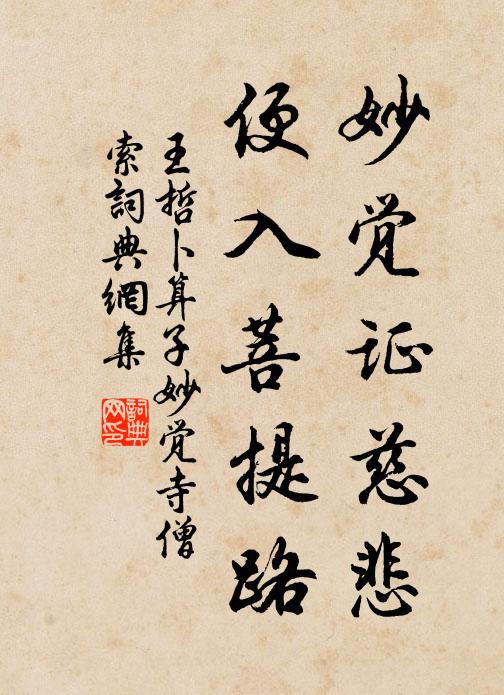 妙觉证慈悲
便入菩提路
王哲卜算子妙觉寺僧
索詞典網集
詞典
网印